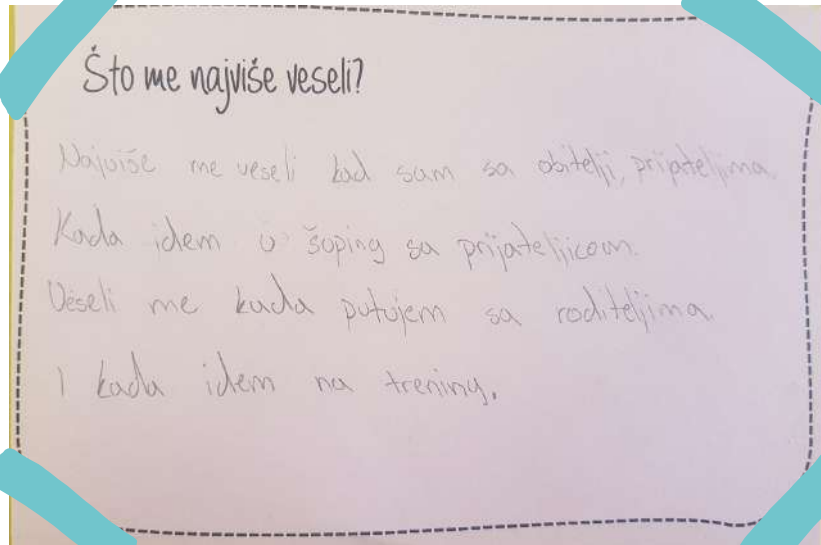 Što me najviše veseli?
Najviše me veseli kad sam sa obitelji, prijateljima.
Kada idem u šoping sa prijateljicom.
Veseli me kada putujem sa roditeljima.
I kada idem na trening.